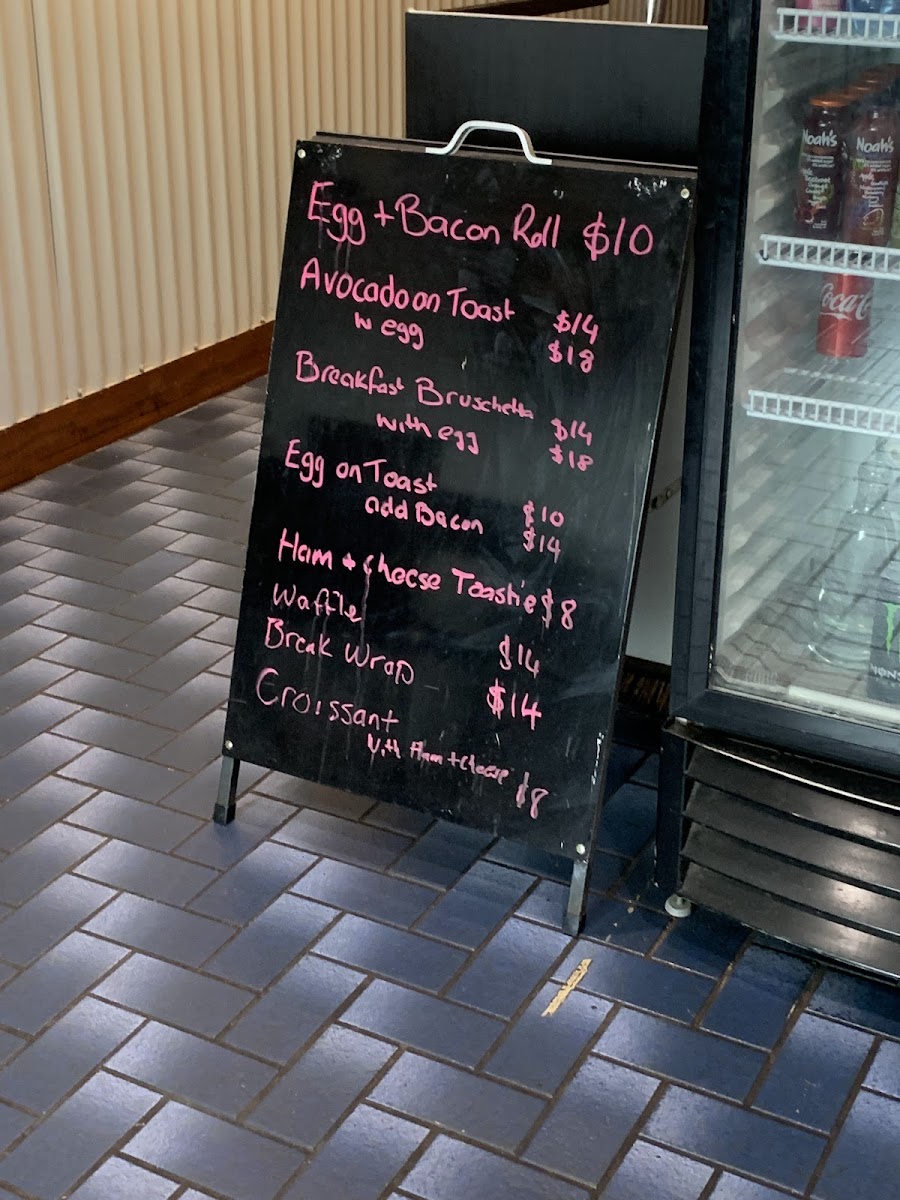 Egg + Bacon Roll $10
Avocado on Toast $14
w egg $18
Breakfast Bruschetta $14
with egg $18
Egg on Toast $10
add Bacon $14
Ham + Cheese Toastie $8
Waffle $14
Break Wrap $14
Croissant
With Ham + Cheese $8
Noah's
Noah's
Coca-C